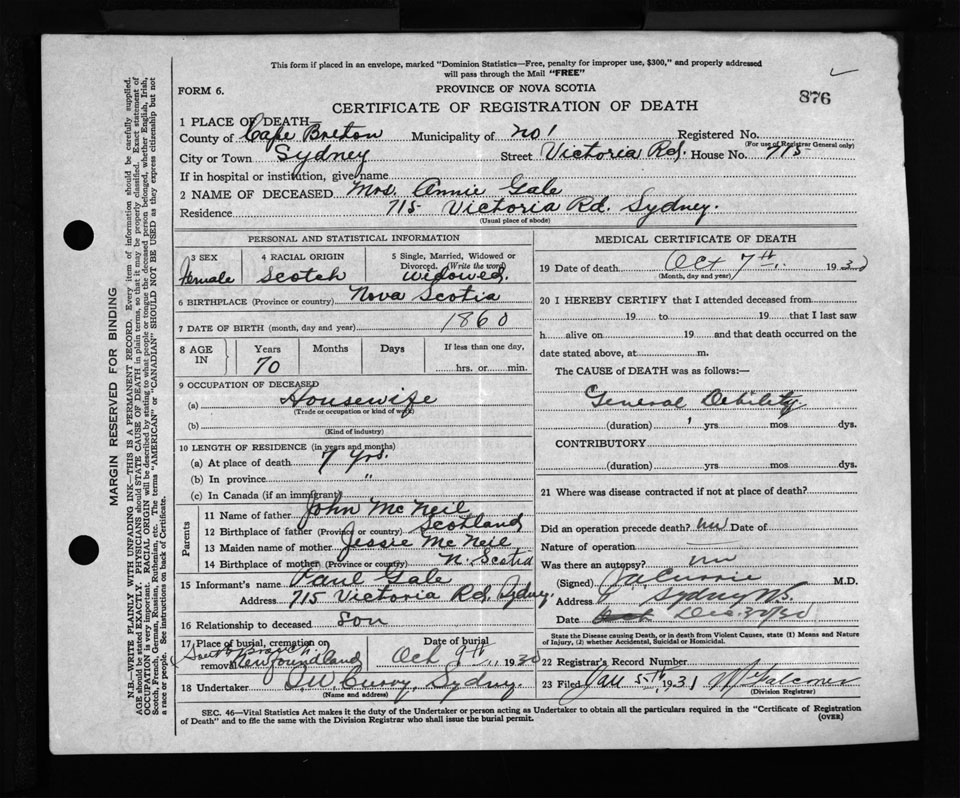 This form if placed in an envelope, marked "Dominion Statistics—Free, penalty for improper use, $300," and properly addressed
will pass through the Mail "FREE"
FORM 6.
PROVINCE OF NOVA SCOTIA
876
CERTIFICATE OF REGISTRATION OF DEATH
1 PLACE OF DEATH
County of Cape Breton Municipality of No 1 Registered No.
(For use of Registrar General only)
City or Town Sydney Street Victoria Rd. House No. 715
If in hospital or institution, give name
2 NAME OF DECEASED Mrs. Annie Gale
Residence 715 Victoria Rd. Sydney.
(Usual place of abode)
MARGIN RESERVED FOR BINDING
N.B.—WRITE PLAINLY WITH UNFADING INK—THIS IS A PERMANENT RECORD. Every item of information should be carefully supplied.
AGE should be stated EXACTLY. PHYSICIANS should STATE CAUSE OF DEATH in plain terms, so that it may be properly classified. Exact statement of
OCCUPATION is very important. RACIAL ORIGIN will be described by stating to what people or tongue the deceased person belonged, whether English, Irish,
Scotch, French, German, Russian, Ruthenian, etc. The terms "AMERICAN" or "CANADIAN" SHOULD NOT BE USED as they express citizenship but not
a race or people. See instructions on back of Certificate.
PERSONAL AND STATISTICAL INFORMATION
3 SEX
Female
4 RACIAL ORIGIN
Scotch
5 Single, Married, Widowed or
Divorced. (Write the word)
Widowed
6 BIRTHPLACE (Province or country) Nova Scotia
7 DATE OF BIRTH (month, day and year) 1860
8 AGE IN
Years
70
Months
Days
If less than one day,
hrs. or min.
9 OCCUPATION OF DECEASED
(a) Housewife
(Trade or occupation or kind of work)
(b)
(Kind of industry)
10 LENGTH OF RESIDENCE (in years and months)
(a) At place of death 7 Yrs.
(b) In province "
(c) In Canada (if an immigrant)
Parents
11 Name of father John McNeil
12 Birthplace of father (Province or country) Scotland
13 Maiden name of mother Jessie McNeil
14 Birthplace of mother (Province or country) N. Scotia
15 Informant's name Paul Gale
Address 715 Victoria Rd. Sydney.
16 Relationship to deceased Son
17 Place of burial, cremation or
removal South Branch Newfoundland
Date of burial
Oct 9th 1930
18 Undertaker Curry, Sydney.
(Name and address)
MEDICAL CERTIFICATE OF DEATH
19 Date of death Oct 7th, 1930
(Month, day and year)
20 I HEREBY CERTIFY that I attended deceased from
19 to 19 that I last saw
h alive on 19 and that death occurred on the
date stated above, at m.
The CAUSE of DEATH was as follows:—
General Debility
(duration) yrs mos dys.
CONTRIBUTORY
(duration) yrs mos dys.
21 Where was disease contracted if not at place of death?
Did an operation precede death? no Date of
Nature of operation
Was there an autopsy? no
(Signed) Currie M.D.
Address Sydney N.S.
Date Dec. 30
State the Disease causing Death, or in death from Violent Causes, state (1) Means and Nature
of Injury, (2) whether Accidental, Suicidal or Homicidal.
22 Registrar's Record Number
23 Filed Jan 5th, 1931 Falconer
(Division Registrar)
SEC. 46—Vital Statistics Act makes it the duty of the Undertaker or person acting as Undertaker to obtain all the particulars required in the "Certificate of Registration
of Death" and to file the same with the Division Registrar who shall issue the burial permit.
(OVER)